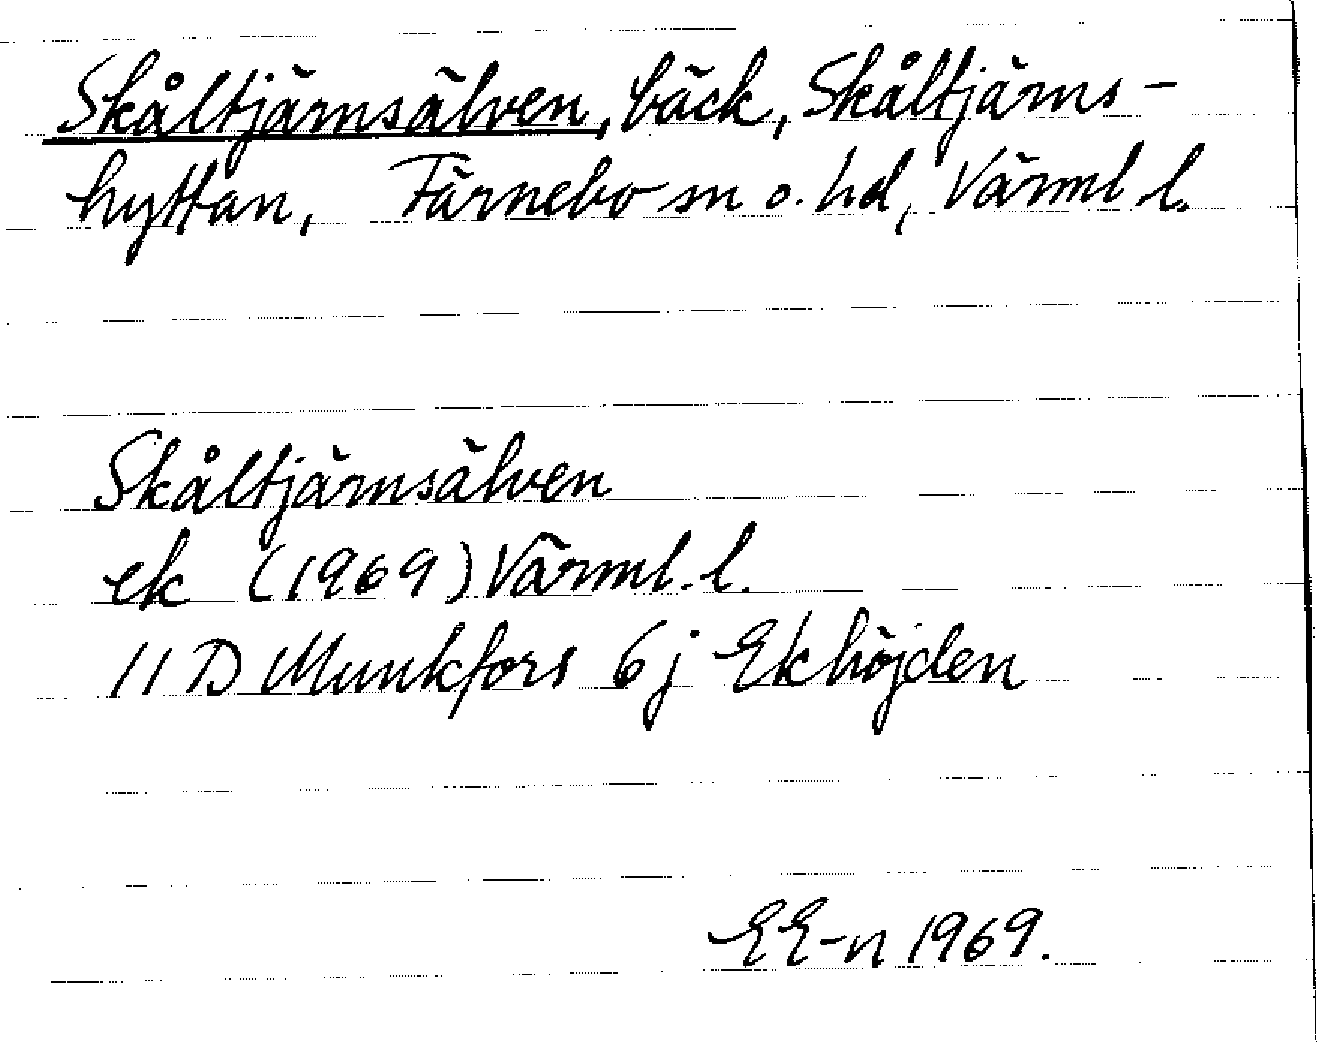 Skåltjärnsälven, bäck, Skåltjärns-
hyttan, Färnebo sn o. hd, Värml l.
Skåltjärnsälven
ek (1969) Värml. l.
11 D Munkfors 6j Ekhöjden
EE-n 1969.